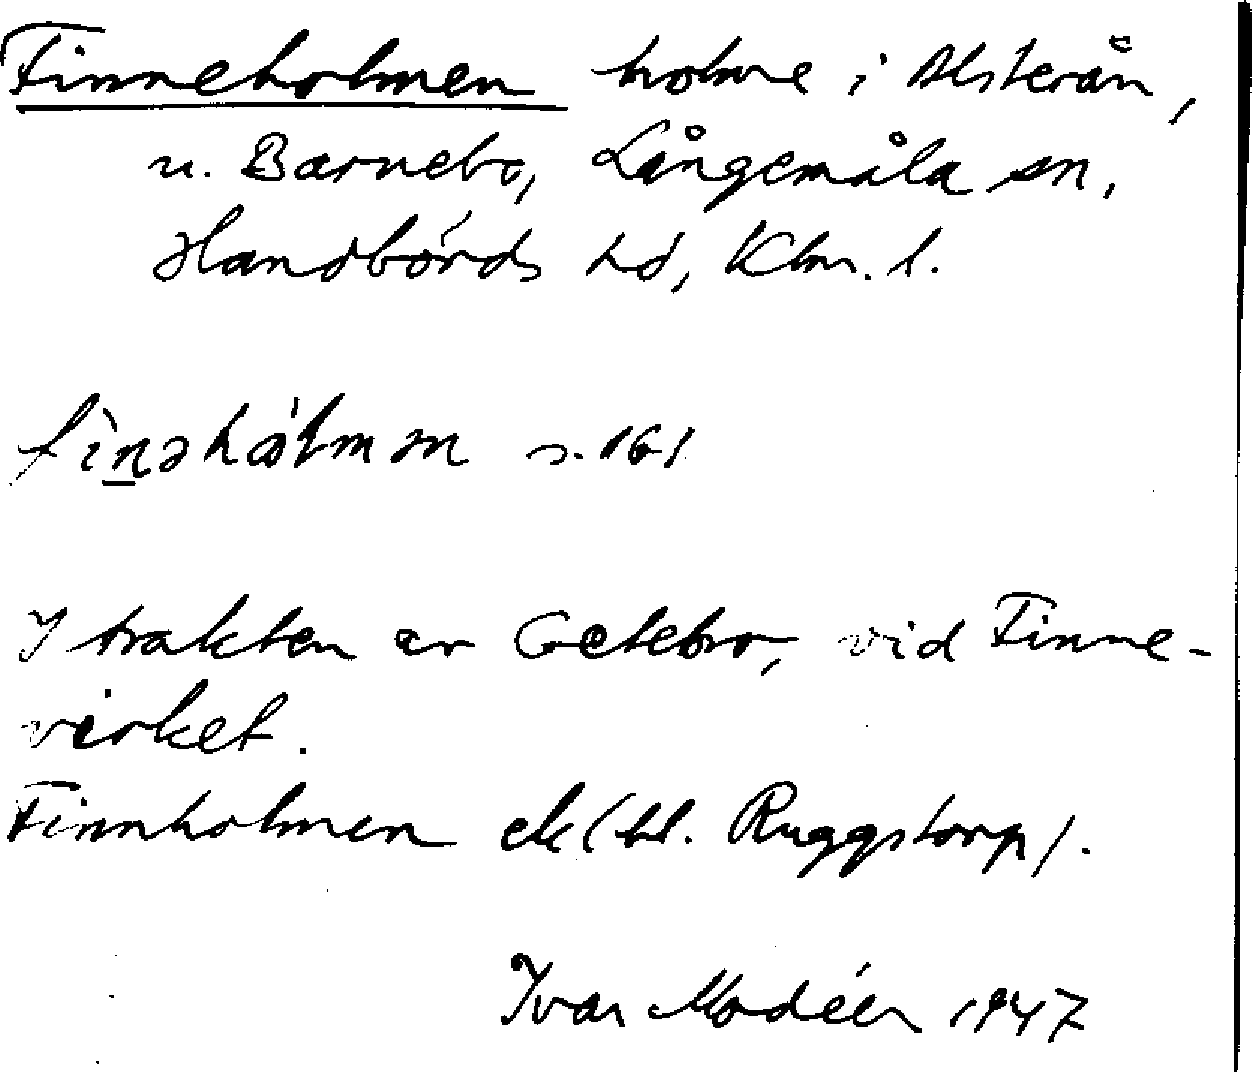 Finneholmen holme i Alsterån,
u. Barnebo, Långemåla sn,
Handbörds hd, Klm. l.
s. 161
I trakten av Getebro, vid Finne-
virket.
Finnholmen ek (bl. Ruggstorp).
Ivar Modéer 1947